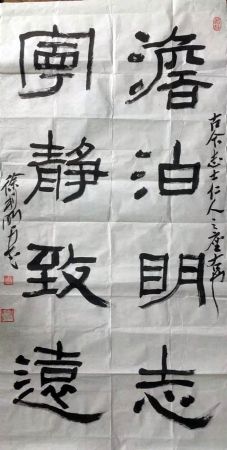 澹泊明志
寧靜致遠
古今志士仁人之座右